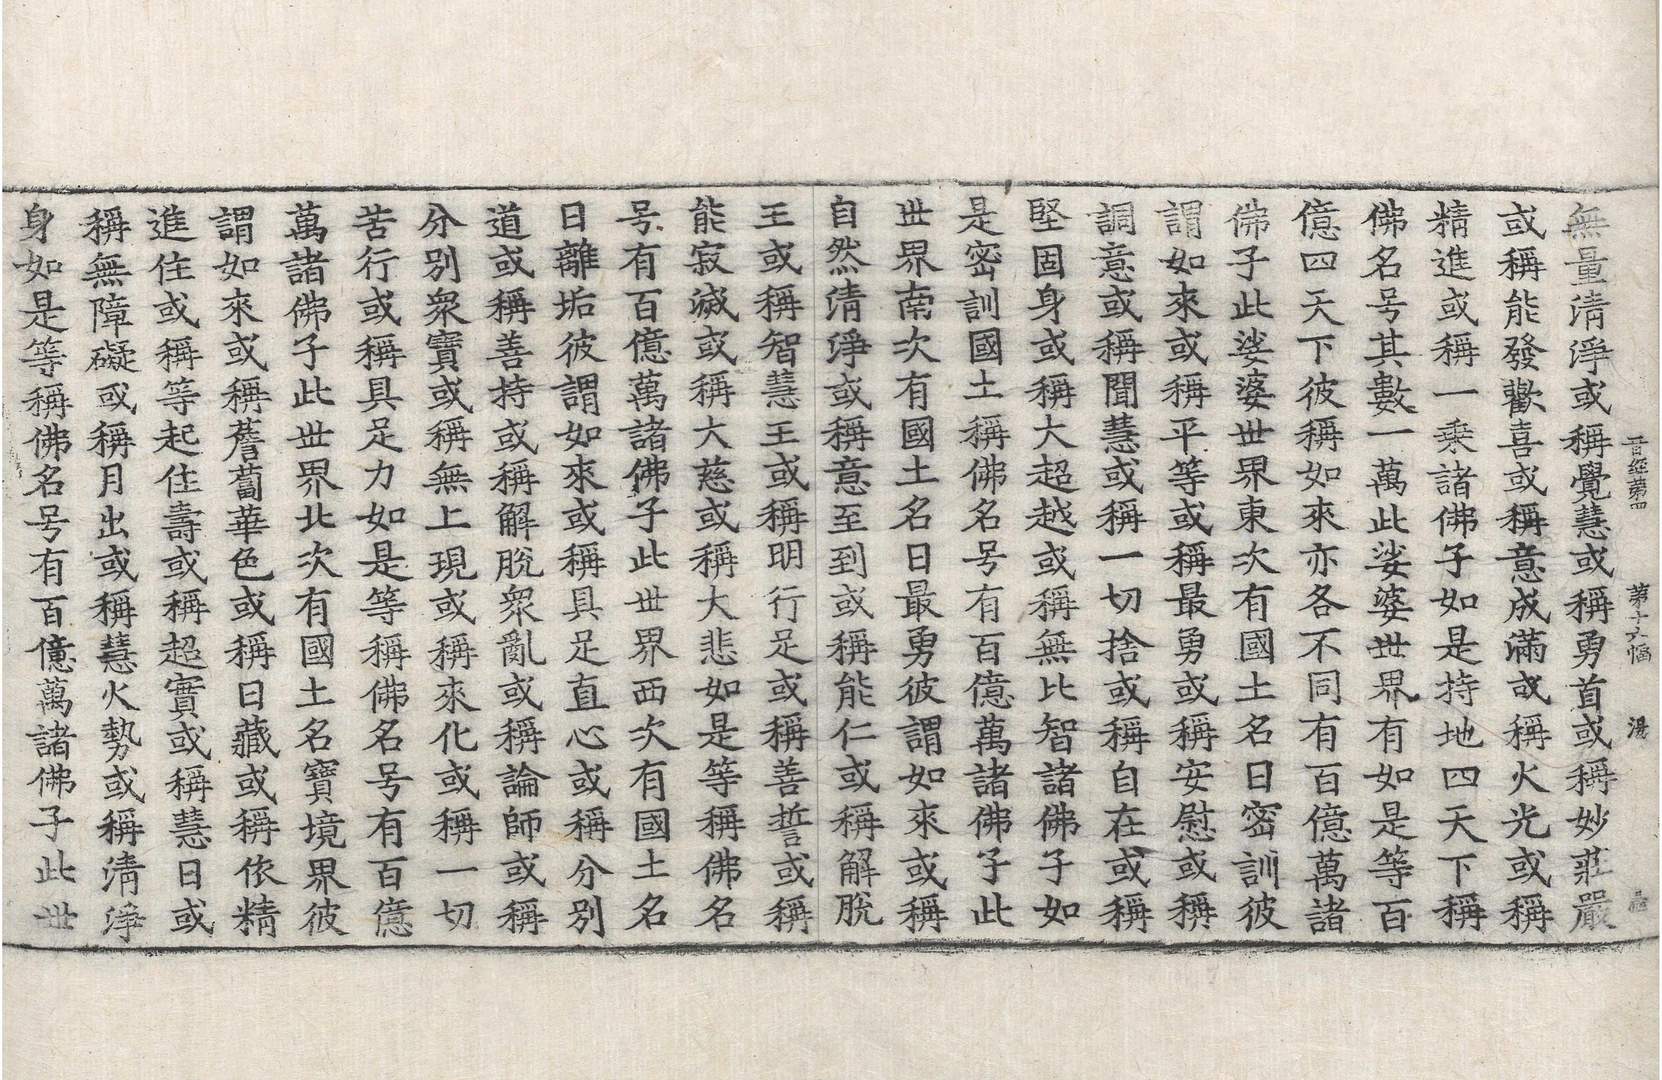 晋経第四　第十六幅　湯
無量清淨或稱覺慧或稱勇首或稱妙莊嚴
或稱能發歡喜或稱意成滿或稱火光或稱
精進或稱一乘諸佛子如是持地四天下稱
佛名号其數一萬此娑婆世界有如是等百
億四天下彼稱如來亦各不同有百億萬諸
佛子此娑婆世界東次有國土名曰密訓彼
謂如來或稱平等或稱最勇或稱安慰或稱
調意或稱聞慧或稱一切捨或稱自在或稱
堅固身或稱大超越或稱無比智諸佛子如
是密訓國土稱佛名号有百億萬諸佛子此
世界南次有國土名曰最勇彼謂如來或稱
自然清淨或稱意至到或稱能仁或稱解脫
王或稱智慧王或稱明行足或稱善誓或稱
能寂滅或稱大慈或稱大悲如是等稱佛名
号有百億萬諸佛子此世界西次有國土名
曰離垢彼謂如來或稱具足直心或稱分別
道或稱善持或稱解脫衆亂或稱論師或稱
分別衆寶或稱無上現或稱來化或稱一切
苦行或稱具足力如是等稱佛名号有百億
萬諸佛子此世界北次有國土名寶境界彼
謂如來或稱薝蔔華色或稱日藏或稱依精
進住或稱等起住壽或稱超實或稱慧日或
稱無障礙或稱月出或稱慧火勢或稱清淨
身如是等稱佛名号有百億萬諸佛子此世